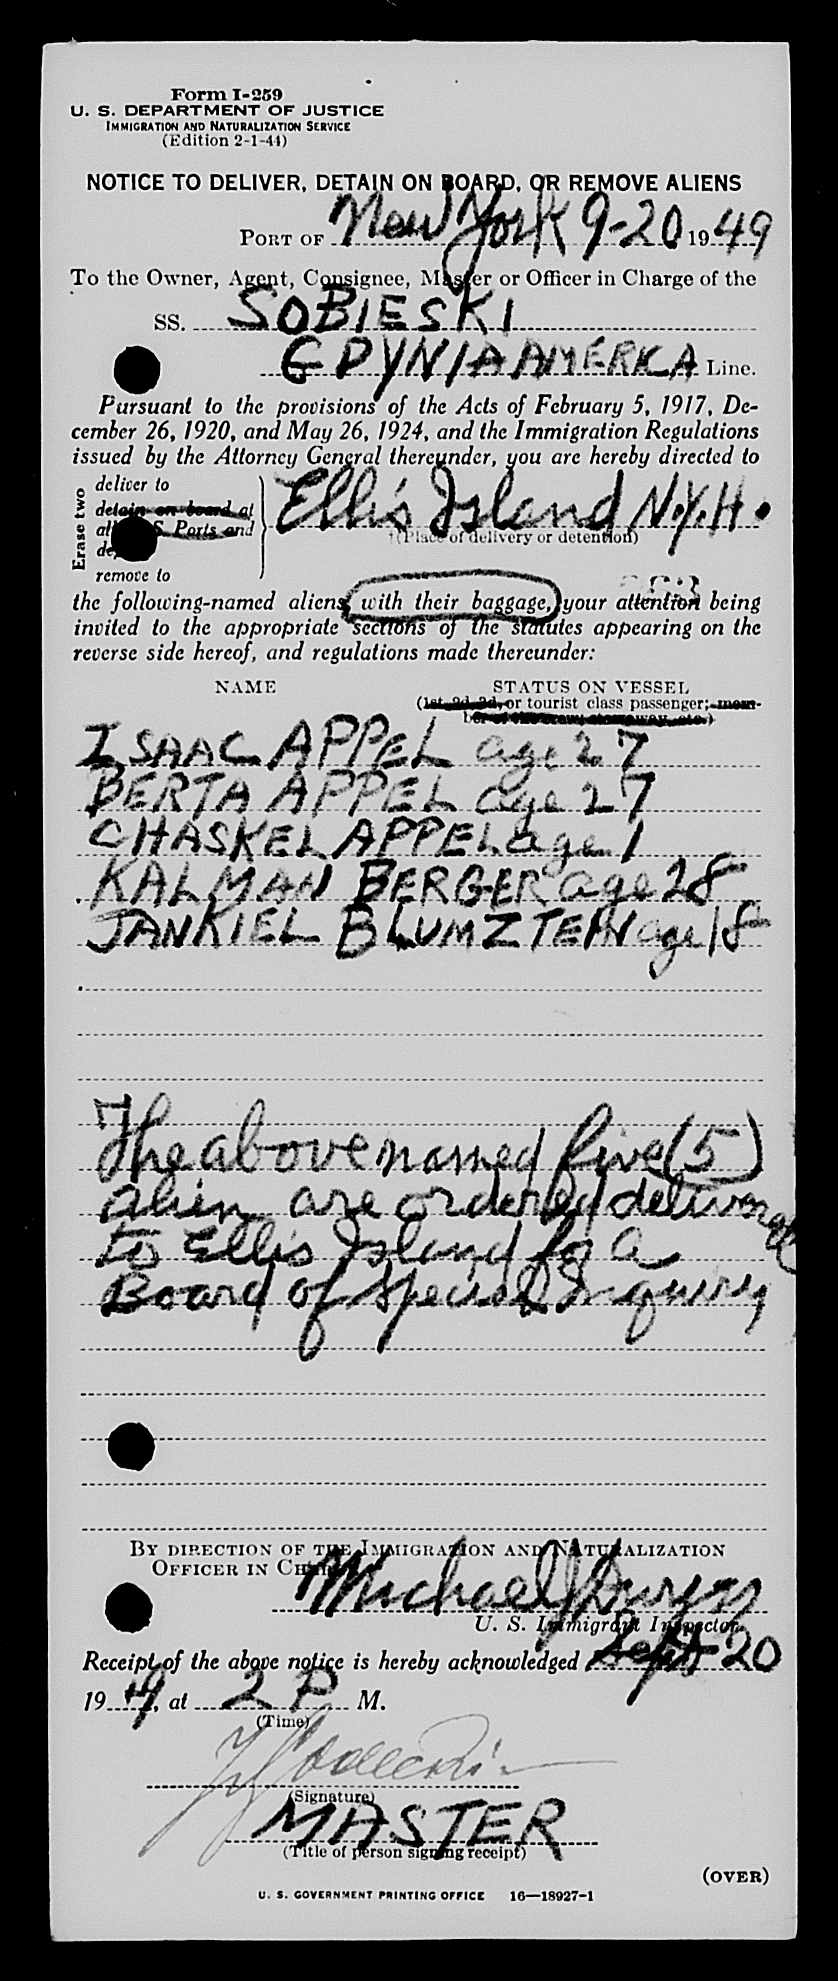 Form I-259
U. S. DEPARTMENT OF JUSTICE
IMMIGRATION AND NATURALIZATION SERVICE
(Edition 2-1-44)
NOTICE TO DELIVER, DETAIN ON BOARD, OR REMOVE ALIENS
PORT OF New York 9-20 1949
To the Owner, Agent, Consignee, Master or Officer in Charge of the
SS. SOBIESKI
GDYNIA AMERICA Line.
Pursuant to the provisions of the Acts of February 5, 1917, De-
cember 26, 1920, and May 26, 1924, and the Immigration Regulations
issued by the Attorney General thereunder, you are hereby directed to
Erase two
deliver to
detain on board at
al S. Ports and
de
remove to
Ellis Island N.Y.H.
(Place of delivery or detention)
the following-named aliens, with their baggage, your attention being
invited to the appropriate sections of the statutes appearing on the
reverse side hereof, and regulations made thereunder:
NAME STATUS ON VESSEL
(1st, 2d, 3d, or tourist class passenger; mem-
ber of the crew, stowaway, etc.)
ISAAC APPEL age 27
BERTA APPEL age 27
CHASKEL APPEL age 1
KALMAN BERGER age 28
JANKIEL BLUMZTEIN age 18
The above named five (5)
alien are ordered delivered
to Ellis Island for a
Board of Special Inquiry
BY DIRECTION OF THE IMMIGRATION AND NATURALIZATION
OFFICER IN CHARGE
Michael J
U. S. Immigrant Inspector.
Receipt of the above notice is hereby acknowledged Sept 20
1949, at 2 P M.
(Time)
(Signature)
MASTER
(Title of person signing receipt)
(OVER)
U. S. GOVERNMENT PRINTING OFFICE 16—18927-1